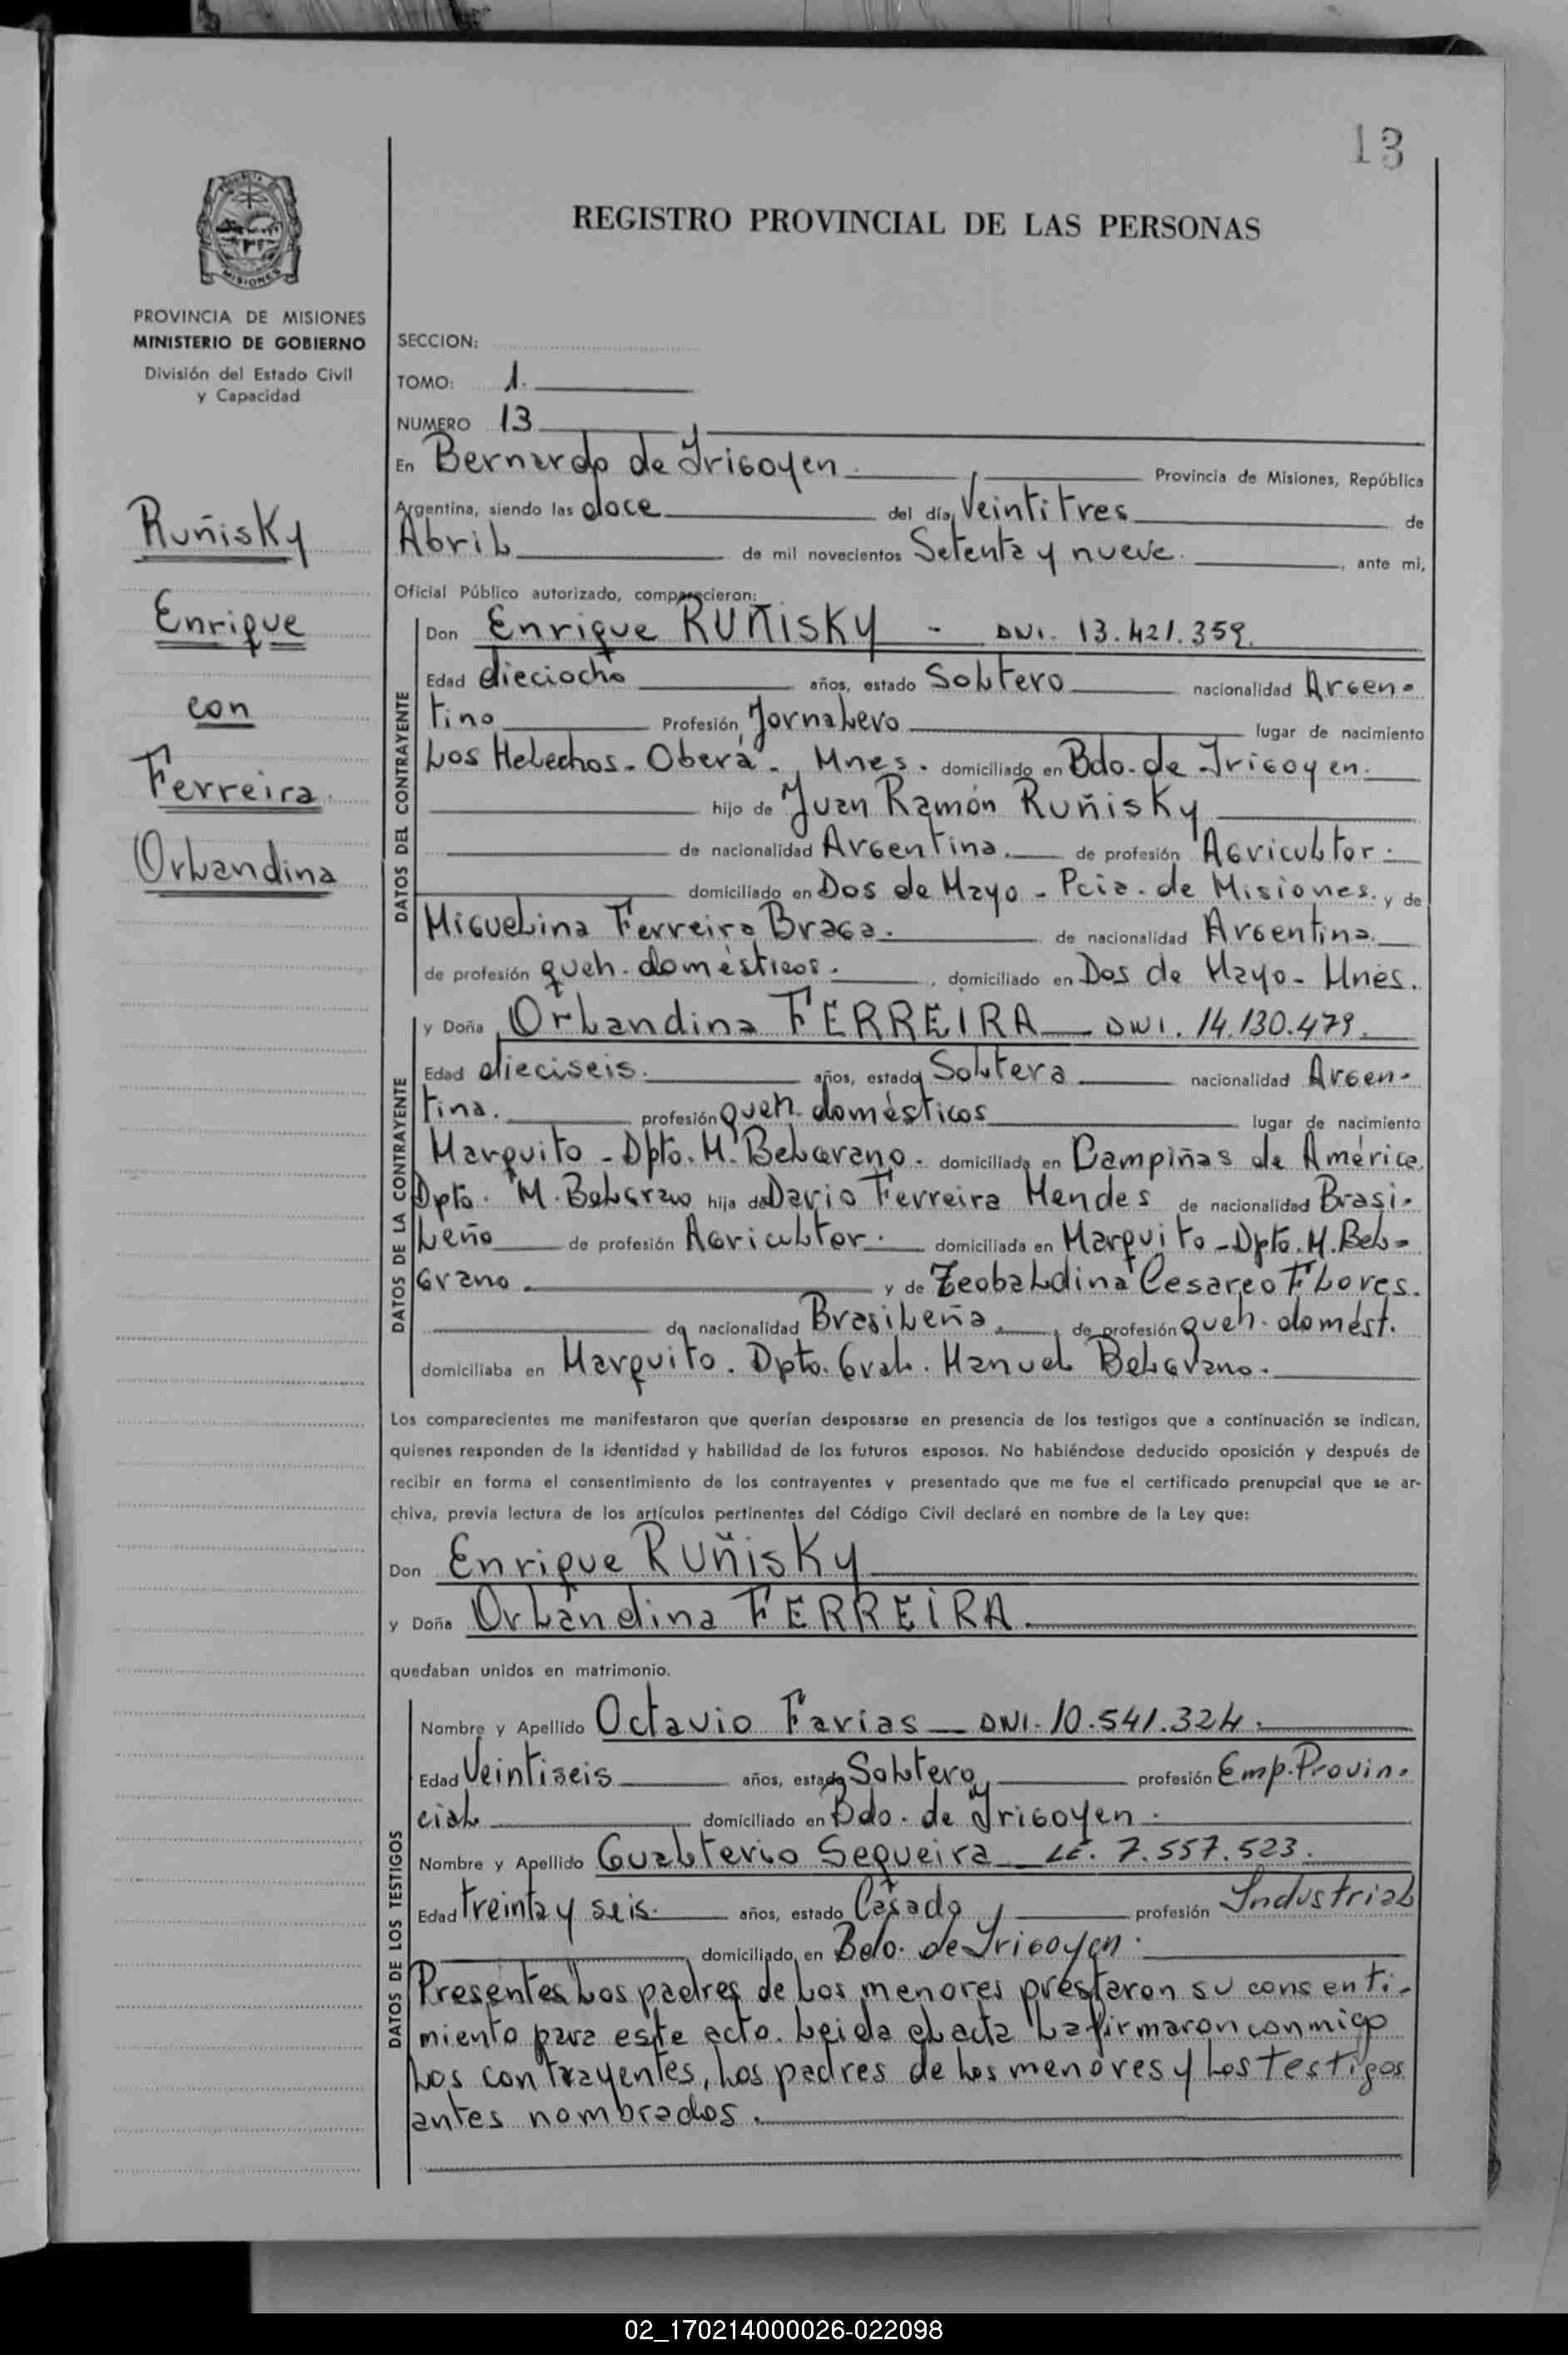 13
REGISTRO PROVINCIAL DE LAS PERSONAS
MISIONES
PROVINCIA DE MISIONES
MINISTERIO DE GOBIERNO
División del Estado Civil
y Capacidad
Ruñisky
Enrique
con
Ferreira
Orlandina
SECCION:
TOMO: 1.
NUMERO 13
En Bernardo de Irigoyen. Provincia de Misiones, República
Argentina, siendo las doce del día Veintitres de
Abril de mil novecientos Setenta y nueve. , ante mi,
Oficial Público autorizado, comparecieron:
DATOS DEL CONTRAYENTE
Don Enrique RUÑISKY - DNI. 13.421.359.
Edad dieciocho años, estado Soltero nacionalidad Argen-
tino Profesión Jornalero lugar de nacimiento
Los Helechos - Oberá -, Mnes. domiciliado en Bdo. de Irigoyen.
hijo de Juan Ramón Ruñisky
de nacionalidad Argentina. de profesión Agricultor.
domiciliado en Dos de Mayo - Pcia. de Misiones. y de
Miguelina Ferreira Braga. de nacionalidad Argentina.
de profesión queh. domésticos. , domiciliado en Dos de Mayo - Mnes.
DATOS DE LA CONTRAYENTE
y Doña Orlandina FERREIRA DNI. 14.130.479.
Edad dieciseis. años, estado Soltera nacionalidad Argen-
tina. profesión queh. domésticos lugar de nacimiento
Marquito - Dpto. M. Belgrano. domiciliada en Campiñas de América
Dpto. M. Belgrano hija de Dario Ferreira Mendes de nacionalidad Brasi-
leño de profesión Agricultor. domiciliada en Marquito - Dpto. M. Bel-
grano. y de Teobaldina Cesareo Flores.
de nacionalidad Brasileña. , de profesión queh. domést.
domiciliaba en Marquito. Dpto. Gral. Manuel Belgrano.
Los comparecientes me manifestaron que querían desposarse en presencia de los testigos que a continuación se indican,
quienes responden de la identidad y habilidad de los futuros esposos. No habiéndose deducido oposición y después de
recibir en forma el consentimiento de los contrayentes y presentado que me fue el certificado prenupcial que se ar-
chiva, previa lectura de los artículos pertinentes del Código Civil declaré en nombre de la Ley que:
Don Enrique RUÑISKY
y Doña Orlandina FERREIRA.
quedaban unidos en matrimonio.
DATOS DE LOS TESTIGOS
Nombre y Apellido Octavio Farias - DNI. 10.541.324.
Edad Veintiseis años, estado Soltero, profesión Emp. Provin-
cial domiciliado en Bdo. de Irigoyen.
Nombre y Apellido Gualterio Sequeira - LE. 7.557.523.
Edad treinta y seis. años, estado Casado, profesión Industrial
domiciliado en Bdo. de Irigoyen.
Presentes los padres de los menores prestaron su consenti-
miento para este acto. Leida el acta la firmaron conmigo
los contrayentes, los padres de los menores y los testigos
antes nombrados.
02_170214000026-022098